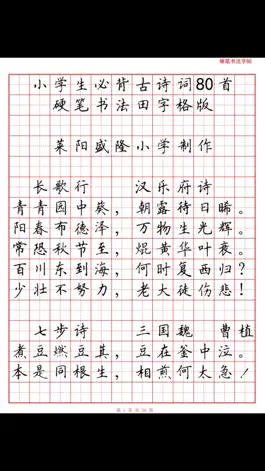 硬笔书法字帖
小学生必背古诗词80首
硬笔书法田字格版
莱阳盛隆小学制作
长歌行 汉乐府诗
青青园中葵，朝露待日晞。
阳春布德泽，万物生光辉。
常恐秋节至，焜黄华叶衰。
百川东到海，何时复西归？
少壮不努力，老大徒伤悲！
七步诗 三国魏 曹植
煮豆燃豆萁，豆在釜中泣。
本是同根生，相煎何太急！